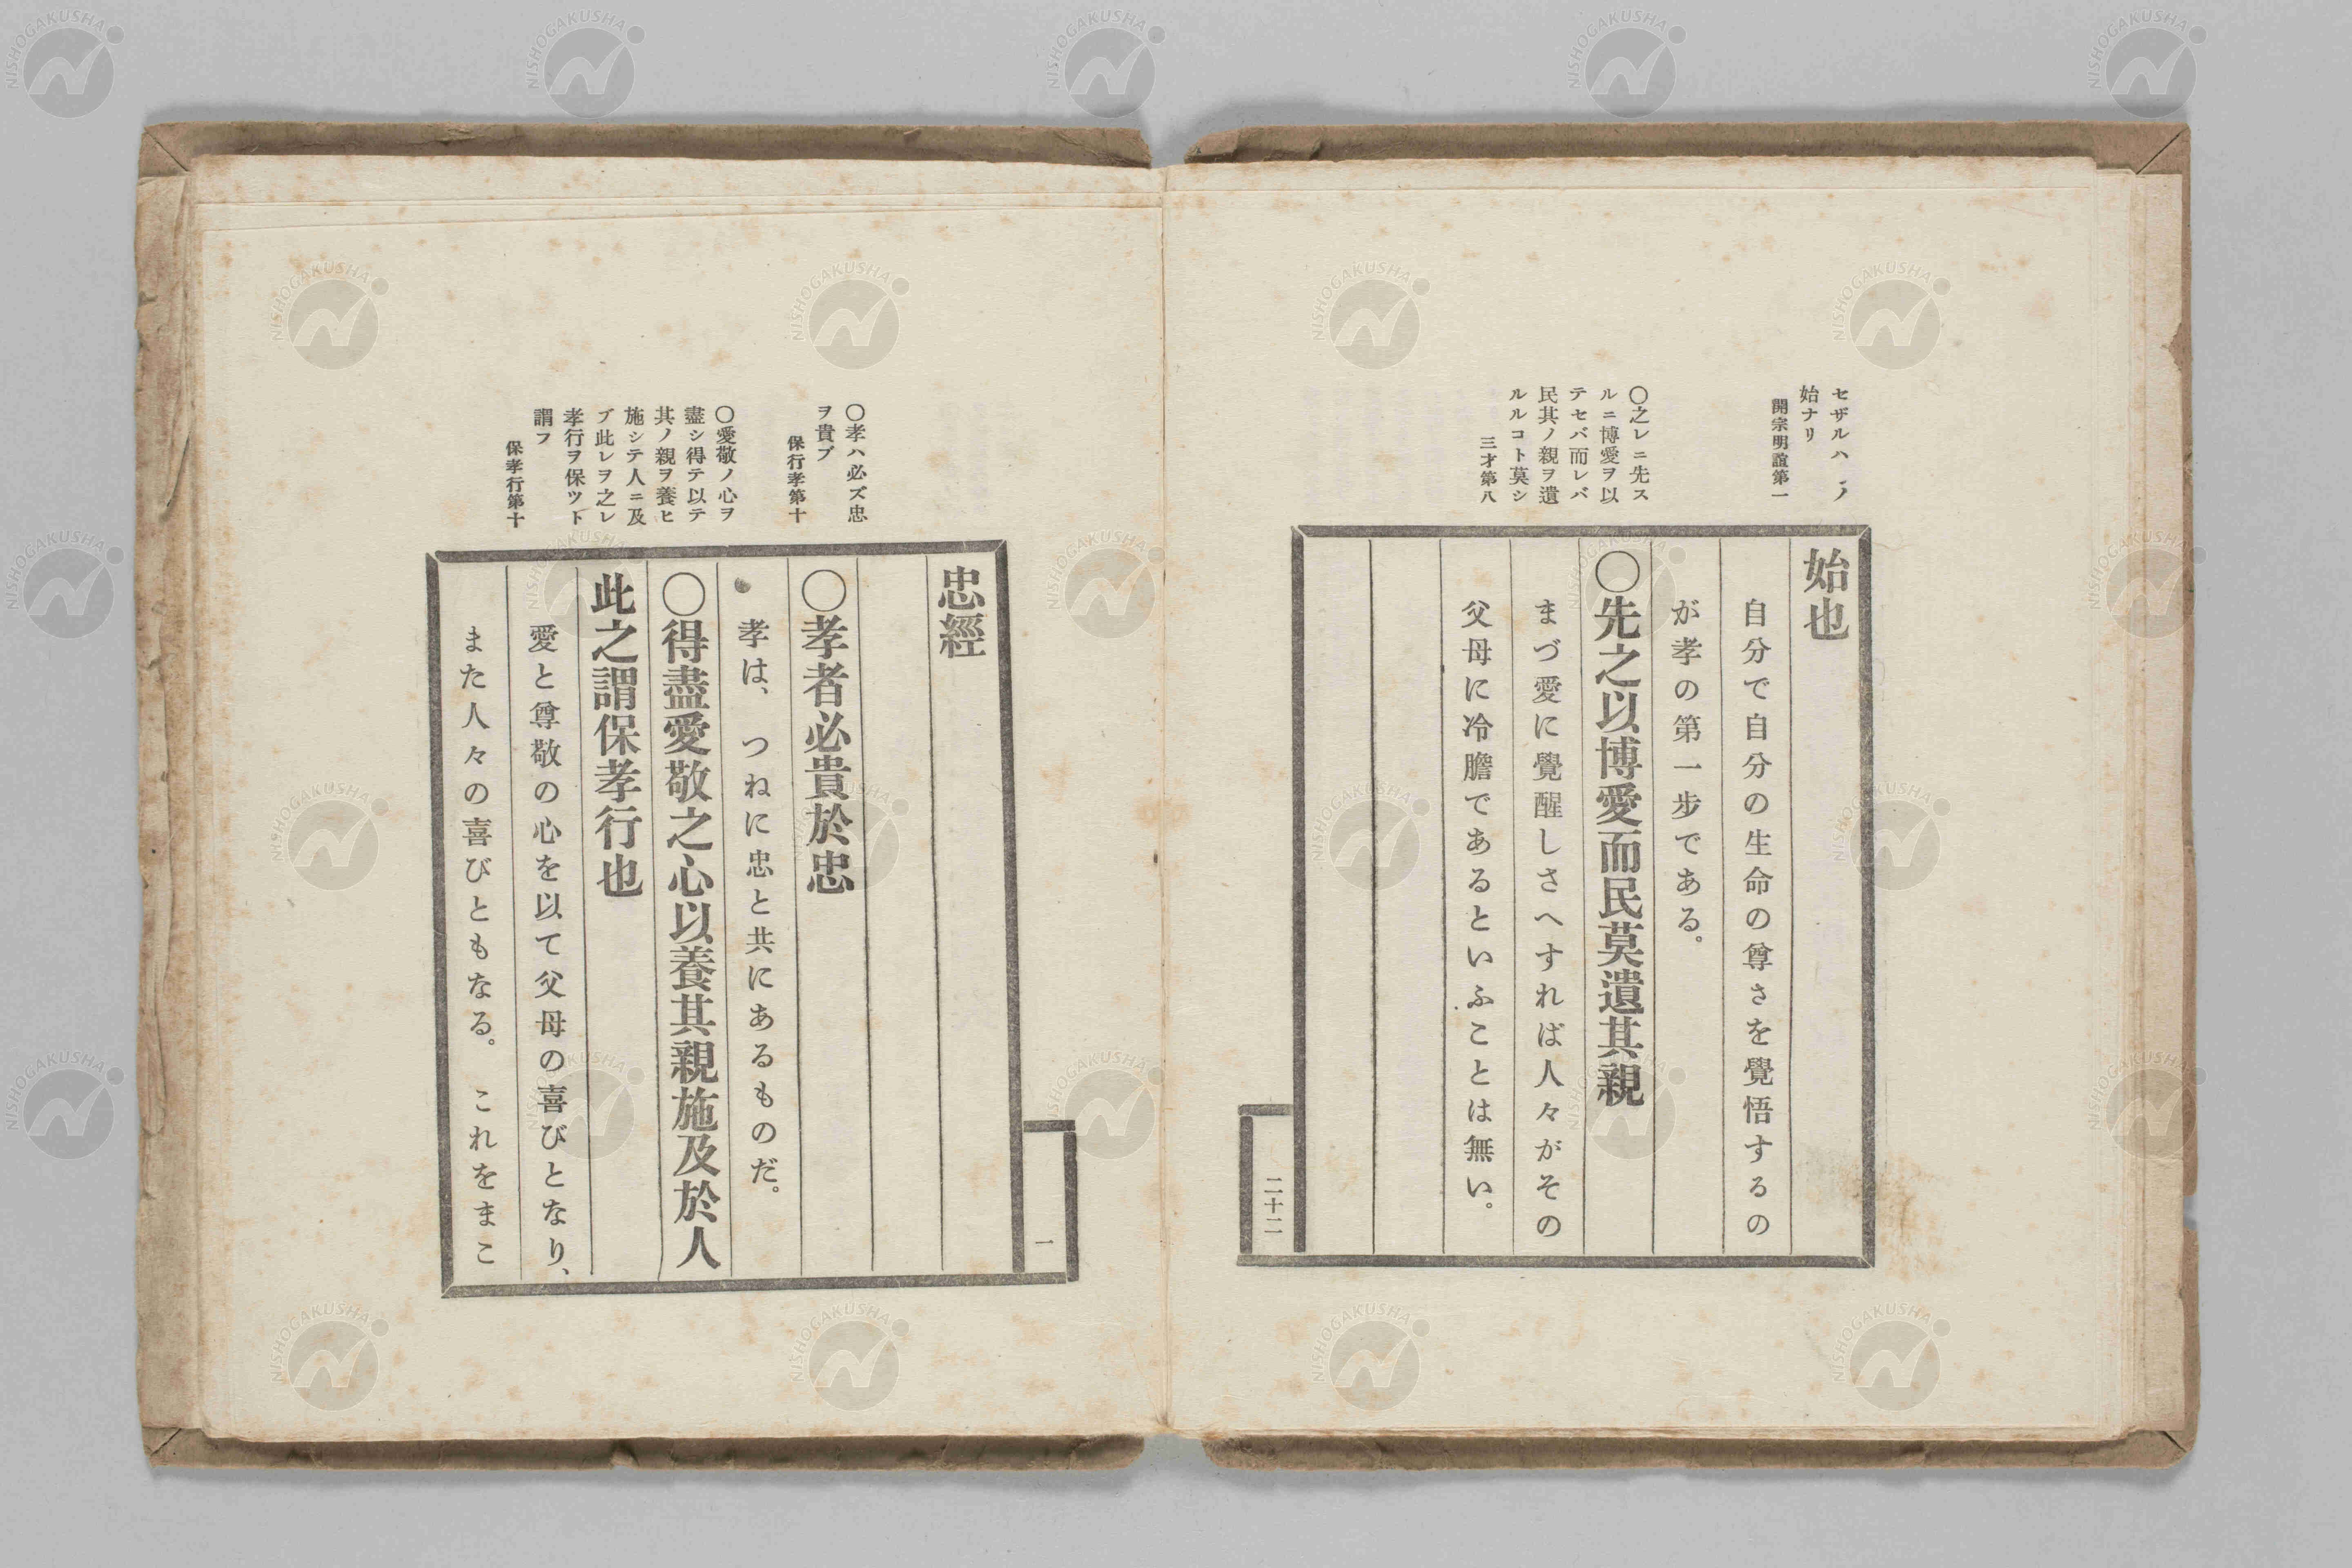 セザルハ
始ナリ
開宗明誼第一
〇之レニ先ス
ルニ博愛ヲ以
テセバ而レバ
民其ノ親ヲ遺
ルルコト莫シ
三才第八
始也
自分で自分の生命の尊さを覺悟するの
が孝の第一步である。
〇先之以博愛而民莫遺其親
まづ愛に覺醒しさへすれば人々がその
父母に冷膽であるといふことは無い。
二十二
〇孝ハ必ズ忠
ヲ貴ブ
保行孝第十
〇愛敬ノ心ヲ
盡シ得テ以テ
其ノ親ヲ養ヒ
施シテ人ニ及
ブ此レヲ之レ
孝行ヲ保ツト
謂フ
保孝行第十
一
忠經
〇孝者必貴於忠
孝は、つねに忠と共にあるものだ。
〇得盡愛敬之心以養其親施及於人
此之謂保孝行也
愛と尊敬の心を以て父母の喜びとなり、
また人々の喜びともなる。これをまこ
NISHOGAKUSHA